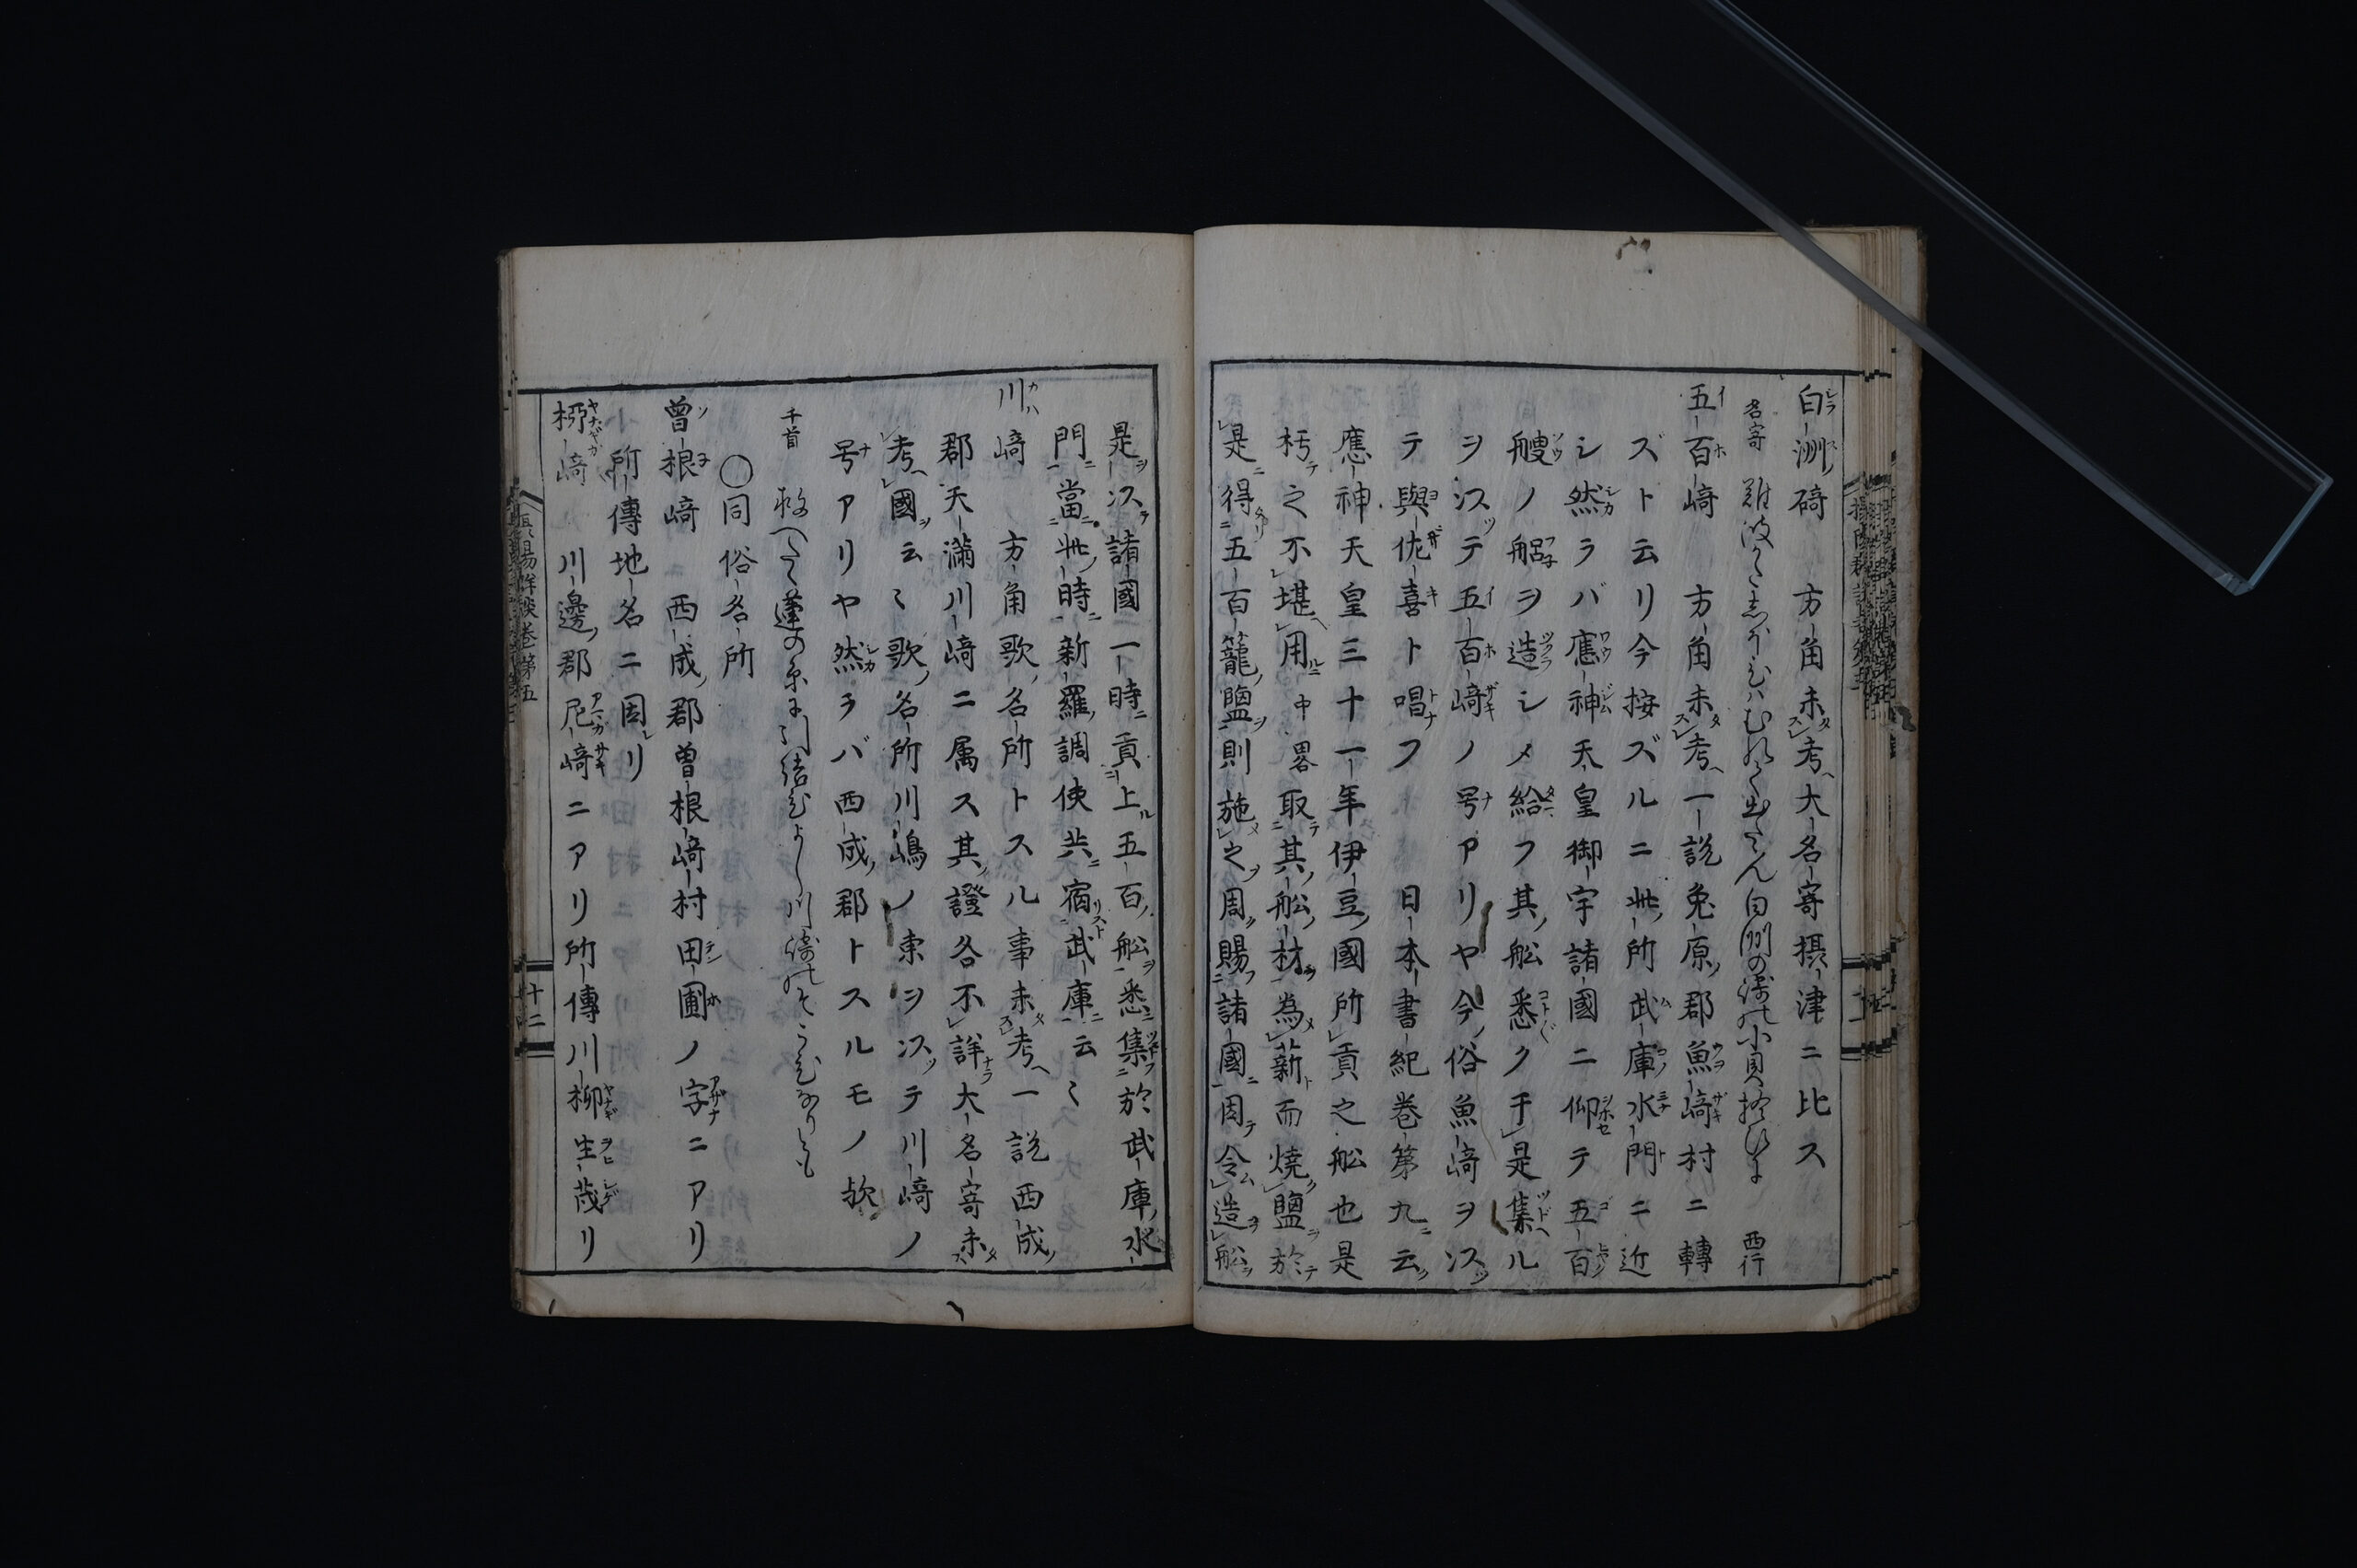 白洲碕　方角未考大名寄摂津ニ比ス
名寄　難波
西行
五百﨑　方角未考一説兔原郡魚﨑村ニ轉
ズト云リ今按ズルニ此所武庫水門ニ近
シ然ラバ應神天皇御宇諸國ニ仰テ五百
艘ノ舩ヲ造シメ給フ其舩悉ク于是集ル
ヲ以テ五百﨑ノ号アリヤ今俗魚﨑ヲ以
テ與佐喜ト唱フ　日本書紀巻第九云
應神天皇三十一年伊豆國所貢之舩也是
朽之不堪用中畧取其舩材為薪而焼鹽於
是得五百籠鹽則施之周賜諸國因令造舩
是以諸國一時貢上五百舩悉集於武庫水
門當此時新羅調使共宿武庫云〻
川﨑　方角歌名所トスル事未考一説西成
郡天満川﨑ニ属ス其證各不詳大名寄未
考國云〻歌名所川嶋ノ東ヲ以テ川﨑ノ
号アリヤ然ラバ西成郡トスルモノ歟
千首
○同俗名所
曽根﨑　西成郡曽根﨑村田圃ノ字ニアリ
所傳地名ニ因リ
栁﨑　川邊郡尼﨑ニアリ所傳川栁生茂リ
巻第五
十二